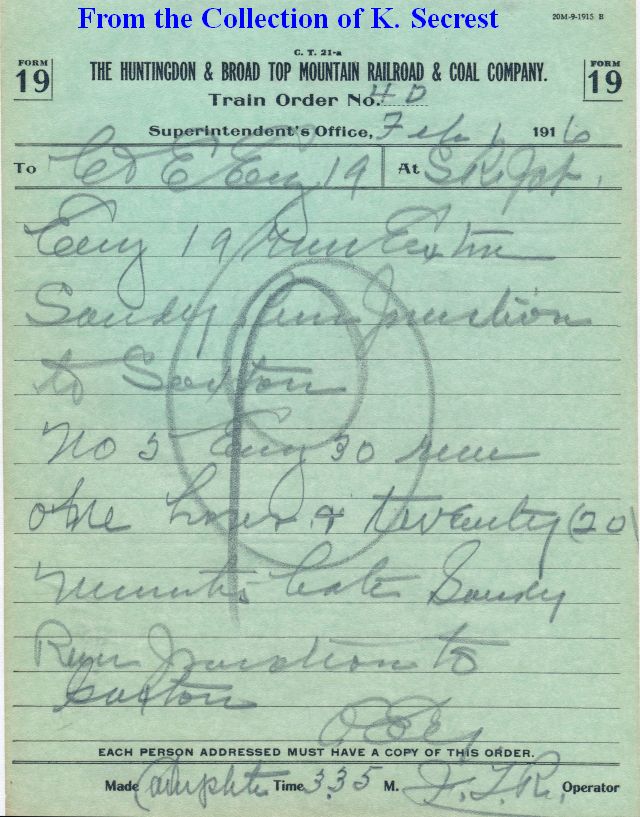 From the Collection of K. Secrest
20M-9-1915 B
C. T. 21-a
FORM 19
THE HUNTINGDON & BROAD TOP MOUNTAIN RAILROAD & COAL COMPANY.
FORM 19
Train Order No. 40
Superintendent's Office, Feb 1 1916
To C & E Eng 19 At S. R. Jct.
Eng 19 run Extra
Sandy Run Junction
to Saxton
No 5 Eng 30 run
one hour & twenty (20)
minutes late Sandy
Run Junction to
Saxton
P
EACH PERSON ADDRESSED MUST HAVE A COPY OF THIS ORDER.
Made Complete Time 3.35 M. Operator